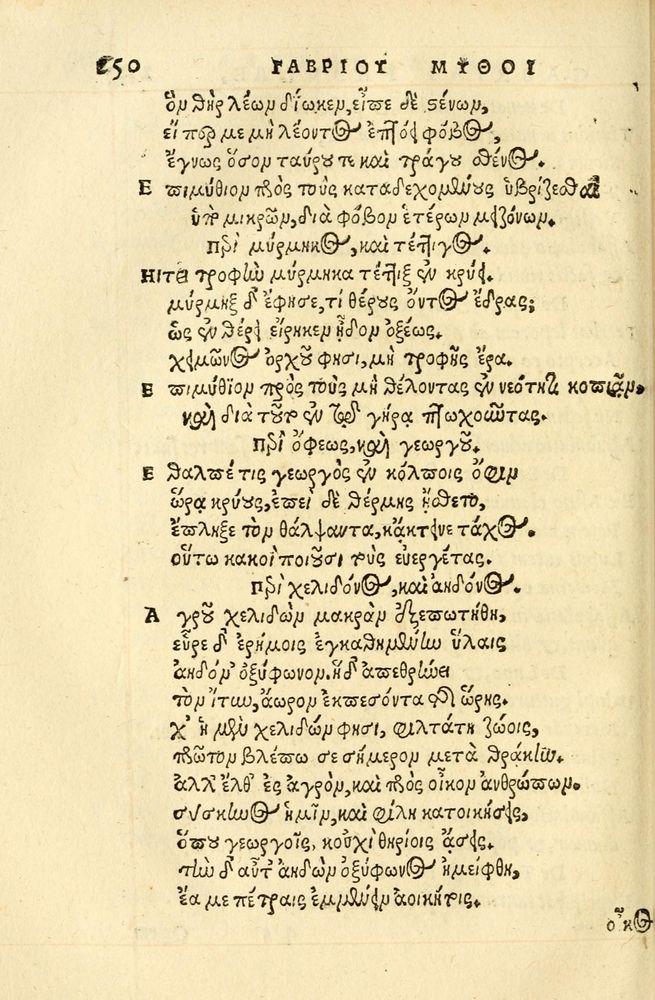 250 ΓΑΒΡΙΟΥ ΜΥΘΟΙ
ὃν θὴρ λέων δίωκεν, εἶπε δὲ στένων,
εἴπερ με μὴ λέοντος ἐπτόει φόβος,
ἔγνως ὅσον ταύρου τε καὶ τράγου σθένος.
Ἐπιμύθιον πρὸς τοὺς καταδεχομένους ὑβρίζεσθαι
ὑπὸ μικρῶν, διὰ φόβον ἑτέρων μειζόνων.
Περὶ μύρμηκος, καὶ τέττιγος.
ΗΙτει τροφὴν μύρμηκα τέττιξ ἐν κρύει.
μύρμηξ δ' ἔφησε, τί θέρους ὄντος ἔδρας;
ὡς ἐν θέρει εἴρηκεν ᾖδον ὀξέως.
χειμῶνος ὀρχοῦ φησι, μὴ τροφῆς ἔρα.
Ἐπιμύθιον πρὸς τοὺς μὴ θέλοντας ἐν νεότητι κοπιᾶν,
καὶ διὰ τοῦτ' ἐν τῷ γήρᾳ πτωχοῦντας.
Περὶ ὄφεως, καὶ γεωργοῦ.
Ἔθαλπέ τις γεωργὸς ἐν κόλποις ὄφιν
ὥρᾳ κρύους, ἐπεὶ δὲ θέρμης ᾔσθετο,
ἔπληξε τὸν θάλψαντα, κᾄκτεινε τάχος.
οὕτω κακοὶ ποιοῦσι τοὺς εὐεργέτας.
Περὶ χελιδόνος, καὶ ἀηδόνος.
Ἀγροῦ χελιδὼν μακρὰν ἐξεπωτήθη,
εὗρε δ' ἐρήμοις ἐγκαθημένην ὕλαις
ἀηδόν' ὀξύφωνον. ἡ δ' ἀπεθρήνει
τὸν ἴτυν, ἄωρον ἐκπεσόντα τῆς ὥρης.
χ' ἡ μὲν χελιδών φησι, φιλτάτη ζώοις,
πρῶτον βλέπω σε σήμερον μετὰ θράκην.
ἀλλ' ἔλθ' ἐς ἀγρὸν, καὶ πρὸς οἶκον ἀνθρώπων.
σύσκηνος ἡμῖν, καὶ φίλη κατοικήσεις,
ὅπου γεωργοῖς, κοὐχὶ θηρίοις ᾄσεις.
τὴν δ' αὖτ' ἀηδὼν ὀξύφωνος ἠμείφθη,
ἔα με πέτραις ἐμμένειν ἀοικήτοις.
οἶκος